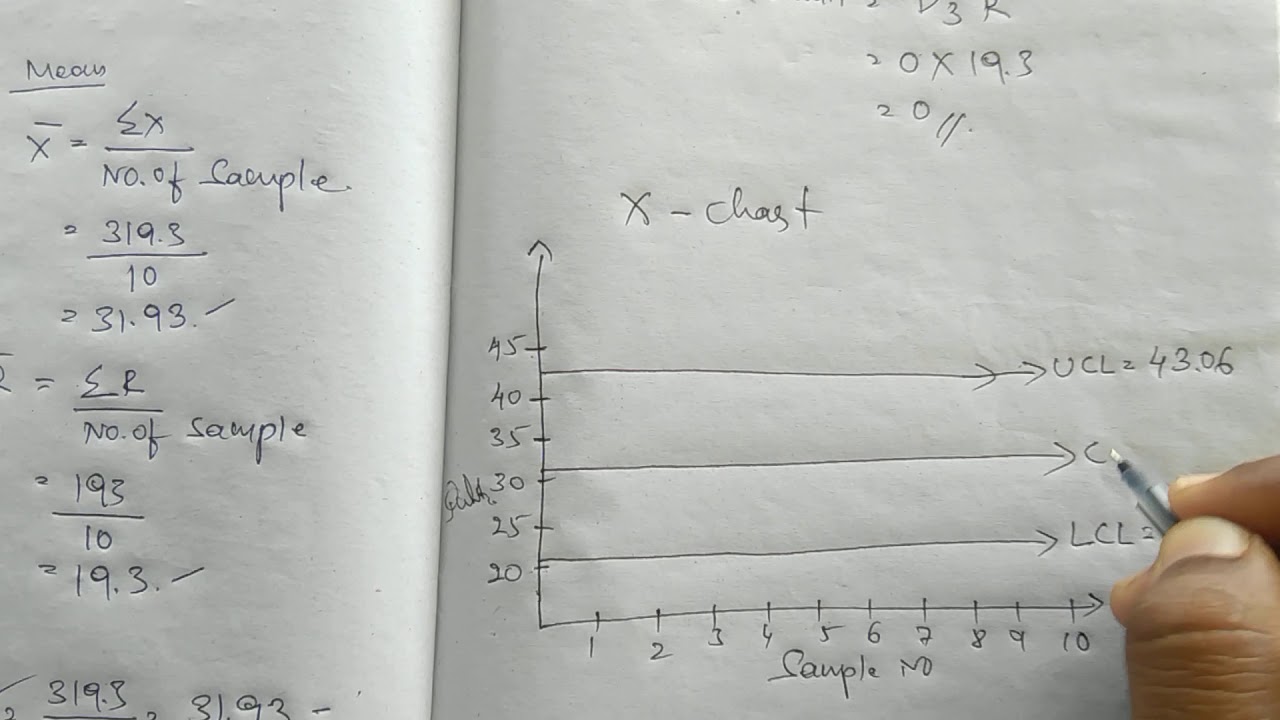 Mean
X̄ = ΣX
No. of Sample
= 319.3
10
= 31.93.
= ΣR
No. of Sample
= 193
10
= 19.3.
319.3 = 31.93
D3 R
= 0 X 19.3
= 0 //.
X - Chart
45
40
35
30
25
20
UCL = 43.06
C
LCL =
1 2 3 4 5 6 7 8 9 10
Sample No